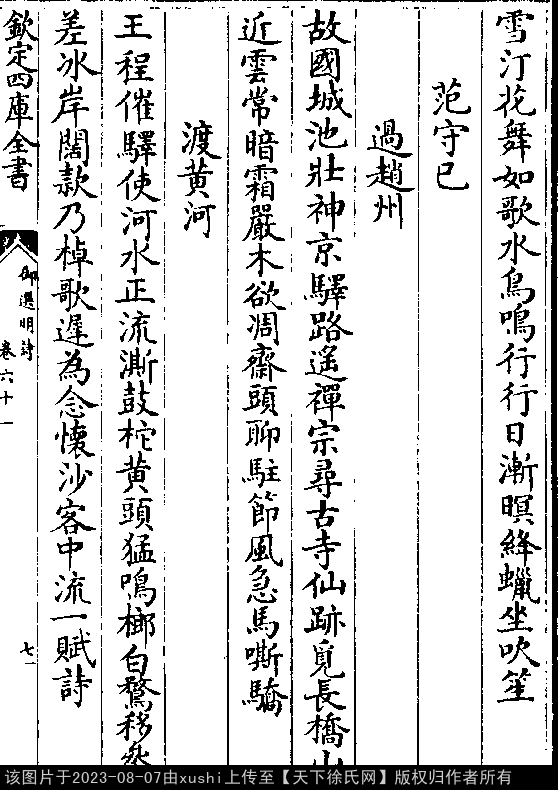 雪汀花舞如歌水鳥鳴行行日漸暝絳蠟坐吹笙
范守已
過趙州
故國城池壯神京驛路遙禪宗尋古寺仙跡覓長橋山
近雲常暗霜嚴木欲凋齋頭聊駐節風急馬嘶驕
渡黄河
王程催驛使河水正流澌鼓柁黄頭猛鳴榔白鷺移
差冰岸闊款乃棹歌遲為念懷沙客中流一賦詩
欽定四庫全書
御選明詩
卷六十一
七
该图片于2023-08-07由xushi上传至【天下徐氏网】版权归作者所有